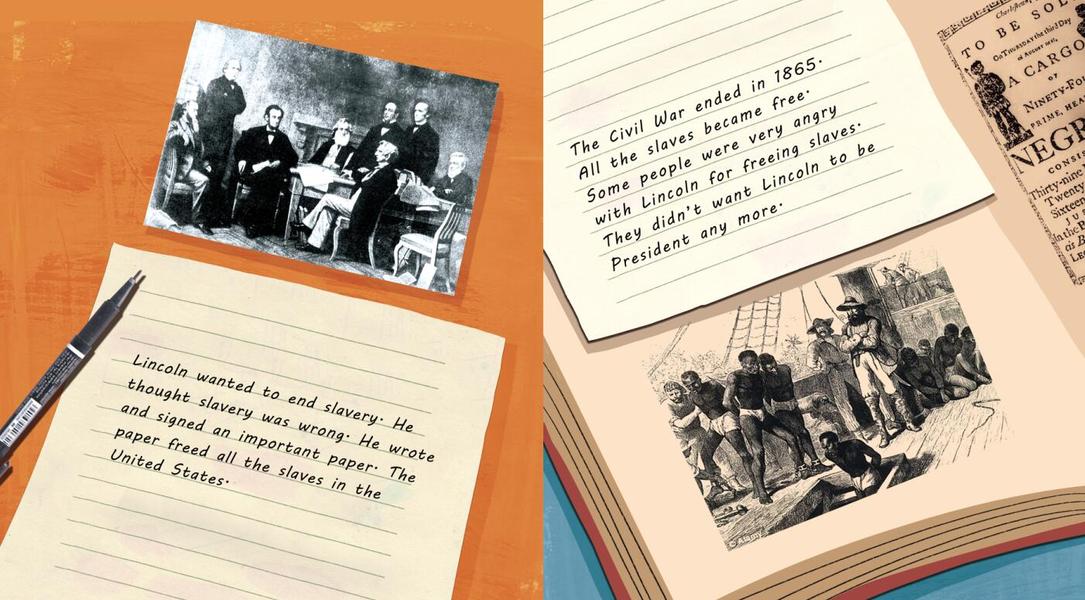 Lincoln wanted to end slavery. He
thought slavery was wrong. He wrote
and signed an important paper. The
paper freed all the slaves in the
United States.
The Civil War ended in 1865.
All the slaves became free.
Some people were very angry
with Lincoln for freeing slaves.
They didn't want Lincoln to be
President any more.
TO BE SOL
On THURSDAY the third Day
of AUGUST
A CARGO
OF
NINETY-FO
PRIME, HE
NEGR
CONSIS
Thirty-nine
Twent
Sixteen
© Alamy